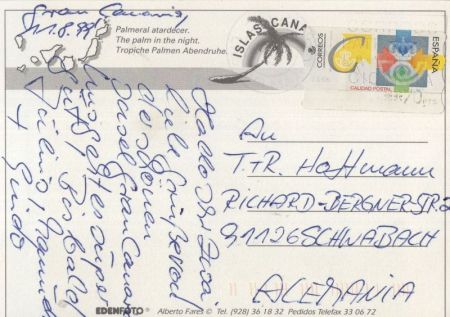 Gran Canaria,
11.8.99
Palmeral atardecer.
The palm in the night.
Tropiche Palmen Abendruhe.
ISLAS CANA
CORREOS
ESPAÑA
CALIDAD POSTAL
Hallo Ihr Zwei,
viele Grüße von
der schönen
Insel Gran Canaria
uns geht es super
gut. Bis bald
Guido
An
T.+R. Hoffmann
RICHARD-BERGNER-STR. 2
91126 SCHWABACH
ALEMANIA
EDENFOTO ® Alberto Fares © Tel. (928) 36 18 32 Pedidos Telefax 33 06 72